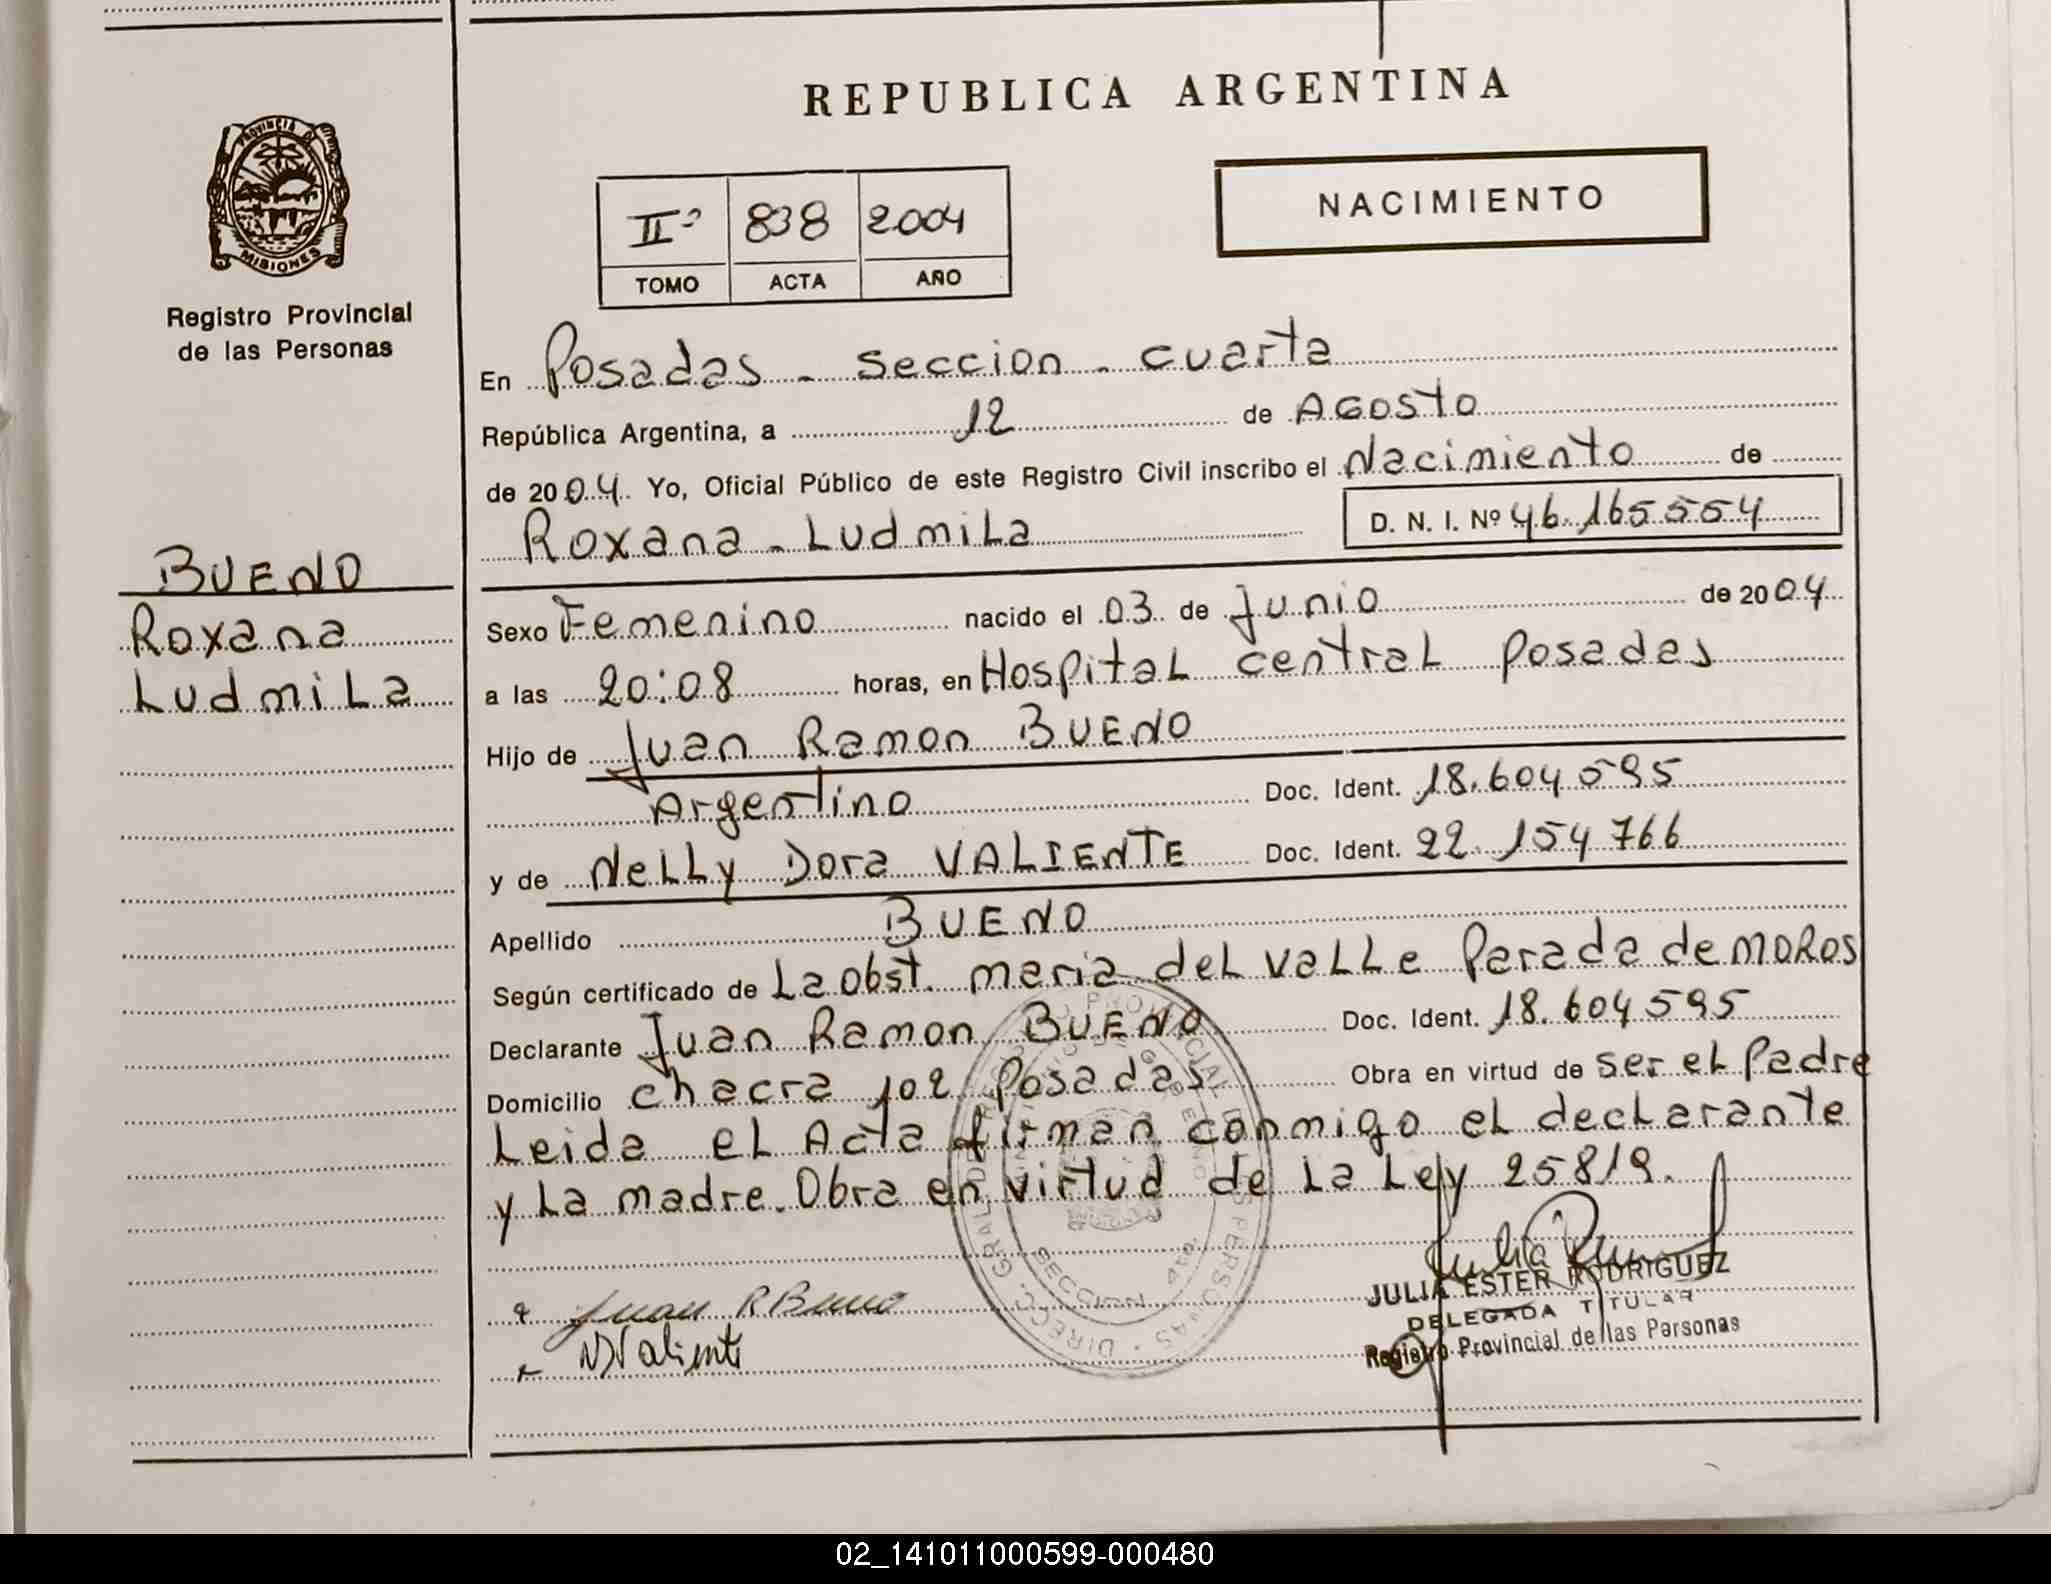 REPUBLICA ARGENTINA
PROVINCIA DE
MISIONES
Registro Provincial
de las Personas
NACIMIENTO
IIº 838 2004
TOMO ACTA AÑO
En Posadas - seccion - cuarta
República Argentina, a 12 de AGOSTO
de 2004. Yo, Oficial Público de este Registro Civil inscribo el Nacimiento de
Roxana - Ludmila D. N. I. Nº 46.165554
BUENO
Roxana
Ludmila
Sexo Femenino nacido el 03 de Junio de 2004
a las 20:08 horas, en Hospital central Posadas
Hijo de Juan Ramon BUENO
Argentino Doc. Ident. 18.604595
y de Nelly Dora VALIENTE Doc. Ident. 22.154766
Apellido BUENO
Según certificado de La obst. maria del valle Parada de MOROS
Declarante Juan Ramon BUENO Doc. Ident. 18.604595
Domicilio chacra 102 Posadas Obra en virtud de ser el Padre
Leida el Acta firman conmigo el declarante
y la madre. Obra en virtud de la Ley 25819.
Juan R Bueno
NDValiente
JULIA ESTER RODRIGUEZ
DELEGADA TITULAR
Registro Provincial de las Personas
02_141011000599-000480